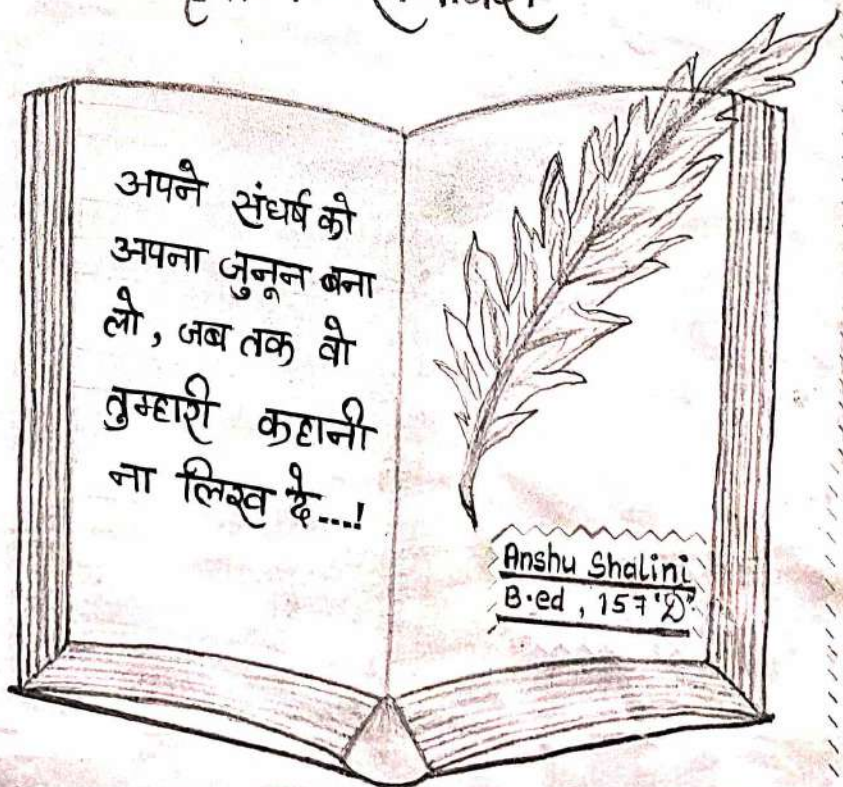 अपने संघर्ष को
अपना जुनून बना
लो, जब तक वो
तुम्हारी कहानी
ना लिख दे...!
Anshu Shalini
B.ed, 157 "D"